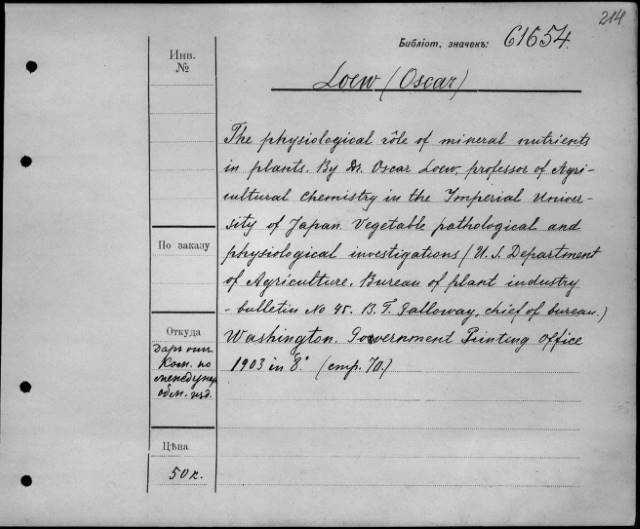 214
Библіот. значекъ: 61654.
Loew (Oscar)
Инв.
№
The physiological rôle of mineral nutrients
in plants. By Dr. Oscar Loew, professor of Agri-
cultural Chemistry in the Imperial Univer-
sity of Japan. Vegetable pathological and
physiological investigations (U. S. Department
of Agriculture. Bureau of plant industry
- bulletin No 45. B. T. Galloway, chief of bureau.)
Washington. Government Printing Office
1903 in 8°. (стр. 70.)
По заказу
Откуда
Даръ отъ
Ком. по
междунар.
обм. изд.
Цѣна
50 к.